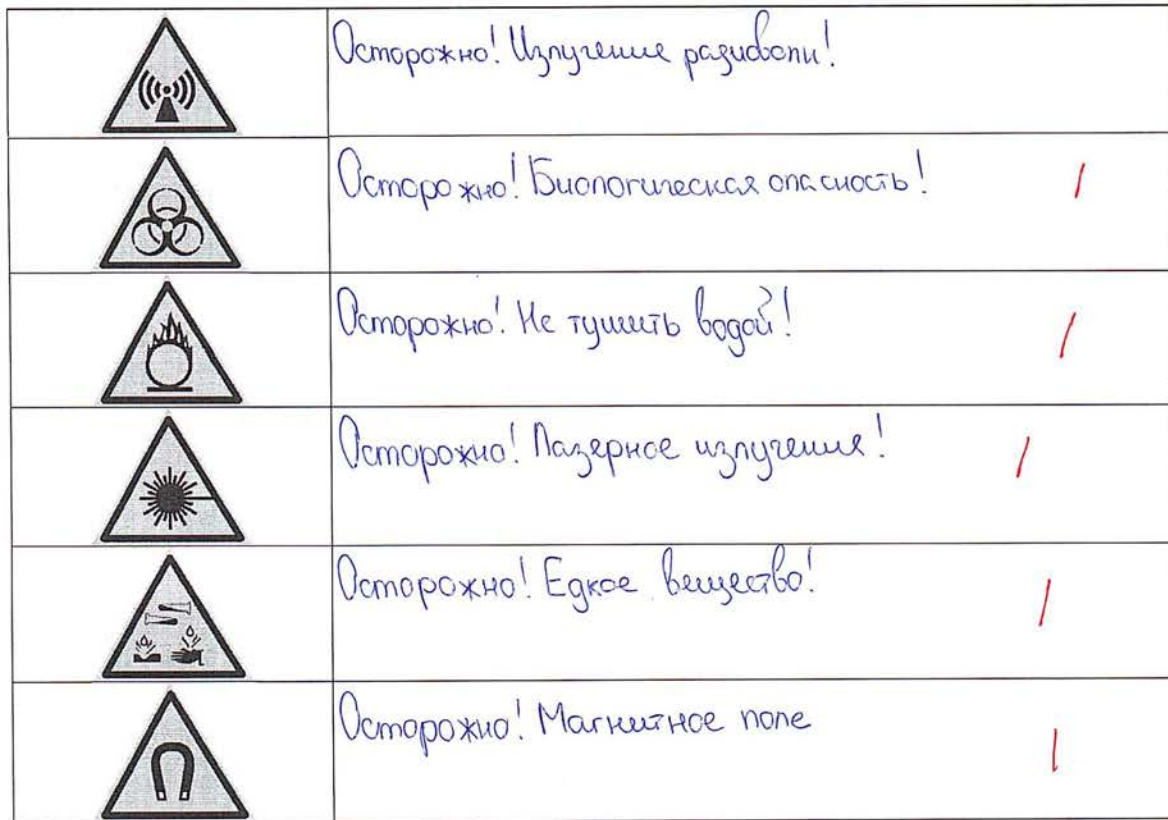 Осторожно! Излучение радиоволн!
Осторожно! Биологическая опасность!
1
Осторожно! Не тушить водой!
1
Осторожно! Лазерное излучения!
1
Осторожно! Едкое вещество!
1
Осторожно! Магнитное поле
1